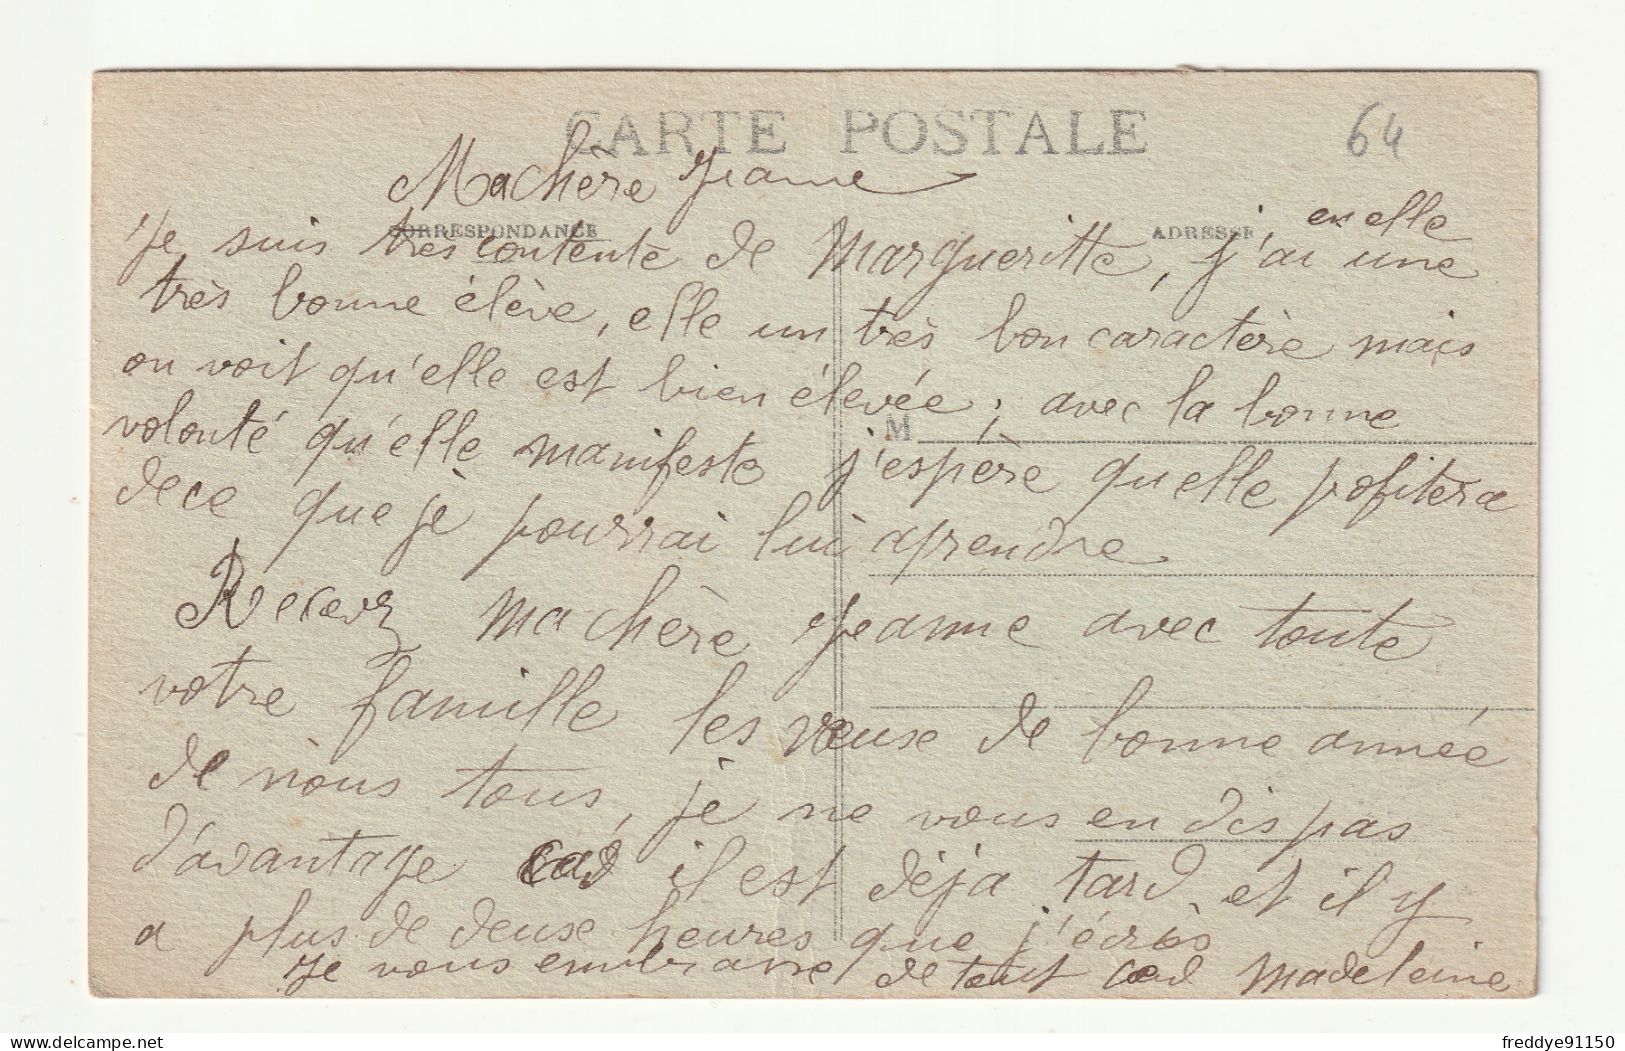 CARTE POSTALE
64
Machère Jeanne
CORRESPONDANCE
ADRESSE
en elle
Je suis très contente de Margueritte, j'ai une
très bonne élève, elle un très bon caractère mais
on voit qu'elle est bien élevée ; avec la bonne
M
volonté qu'elle manifeste j'espère quelle pofitera
dece que je pourrai lui aprendre
Recevez machère Jeanne avec toute
votre famille les veuse de bonne année
de nous tous, je ne vous en dis pas
d'avantage car il est déja tard et il y
a plus de deuse heures que j'écris
Je vous embrasse de tout Madeleine
delcampe.net
freddye91150